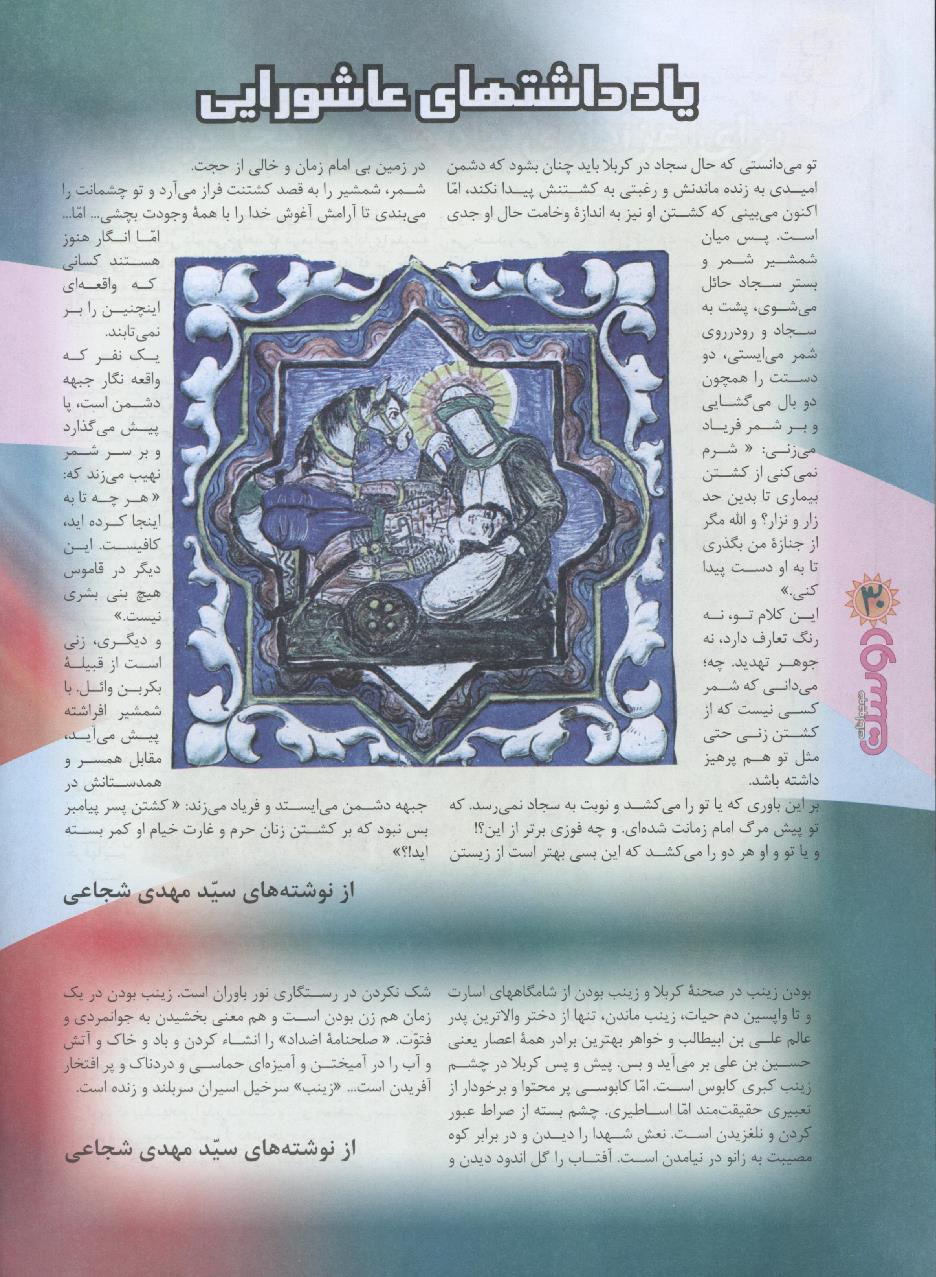 یاد داشتهای عاشورایی
تو می‌دانستی که حال سجاد در کربلا باید چنان بشود که دشمن
امیدی به زنده ماندنش و رغبتی به کشتنش پیدا نکند، امّا
اکنون می‌بینی که کشتن او نیز به اندازهٔ وخامت حال او جدی
است. پس میان
شمشیر شمر و
بستر سجاد حائل
می‌شوی، پشت به
سجاد و رودرروی
شمر می‌ایستی، دو
دستت را همچون
دو بال می‌گشایی
و بر شمر فریاد
می‌زنی: « شرم
نمی‌کنی از کشتن
بیماری تا بدین حد
زار و نزار؟ و الله مگر
از جنازهٔ من بگذری
تا به او دست پیدا
کنی.»
این کلام تو، نه
رنگ تعارف دارد، نه
جوهر تهدید. چه؛
می‌دانی که شمر
کسی نیست که از
کشتن زنی حتی
مثل تو هم پرهیز
داشته باشد.
بر این باوری که یا تو را می‌کشد و نوبت به سجاد نمی‌رسد. که
تو پیش مرگ امام زمانت شده‌ای. و چه فوزی برتر از این؟!
و یا تو و او هر دو را می‌کشد که این بسی بهتر است از زیستن
در زمین بی امام زمان و خالی از حجت.
شمر، شمشیر را به قصد کشتنت فراز می‌آرد و تو چشمانت را
می‌بندی تا آرامش آغوش خدا را با همهٔ وجودت بچشی... امّا...
امّا انگار هنوز
هستند کسانی
که واقعه‌ای
اینچنین را بر
نمی‌تابند.
یک نفر که
واقعه نگار جبهه
دشمن است، پا
پیش می‌گذارد
و بر سر شمر
نهیب می‌زند که:
« هر چه تا به
اینجا کرده اید،
کافیست. این
دیگر در قاموس
هیچ بنی بشری
نیست.»
و دیگری، زنی
است از قبیلهٔ
بکربن وائل. با
شمشیر افراشته
پیش می‌آید،
مقابل همسر و
همدستانش در
جبهه دشمن می‌ایستد و فریاد می‌زند: « کشتن پسر پیامبر
بس نبود که بر کشتن زنان حرم و غارت خیام او کمر بسته
اید!؟»
از نوشته‌های سیّد مهدی شجاعی
بودن زینب در صحنهٔ کربلا و زینب بودن از شامگاههای اسارت
و تا واپسین دم حیات، زینب ماندن، تنها از دختر والاترین پدر
عالم علی بن ابیطالب و خواهر بهترین برادر همهٔ اعصار یعنی
حسین بن علی بر می‌آید و بس. پیش و پس کربلا در چشم
زینب کبری کابوس است. امّا کابوسی پر محتوا و برخودار از
تعبیری حقیقت‌مند امّا اساطیری. چشم بسته از صراط عبور
کردن و نلغزیدن است. نعش شهدا را دیدن و در برابر کوه
مصیبت به زانو در نیامدن است. آفتاب را گل اندود دیدن و
شک نکردن در رستگاری نور باوران است. زینب بودن در یک
زمان هم زن بودن است و هم معنی بخشیدن به جوانمردی و
فتوّت. « صلحنامهٔ اضداد» را انشاء کردن و باد و خاک و آتش
و آب را در آمیختن و آمیزه‌ای حماسی و دردناک و پر افتخار
آفریدن است... «زینب» سرخیل اسیران سربلند و زنده است.
از نوشته‌های سیّد مهدی شجاعی
۳۰
دوست